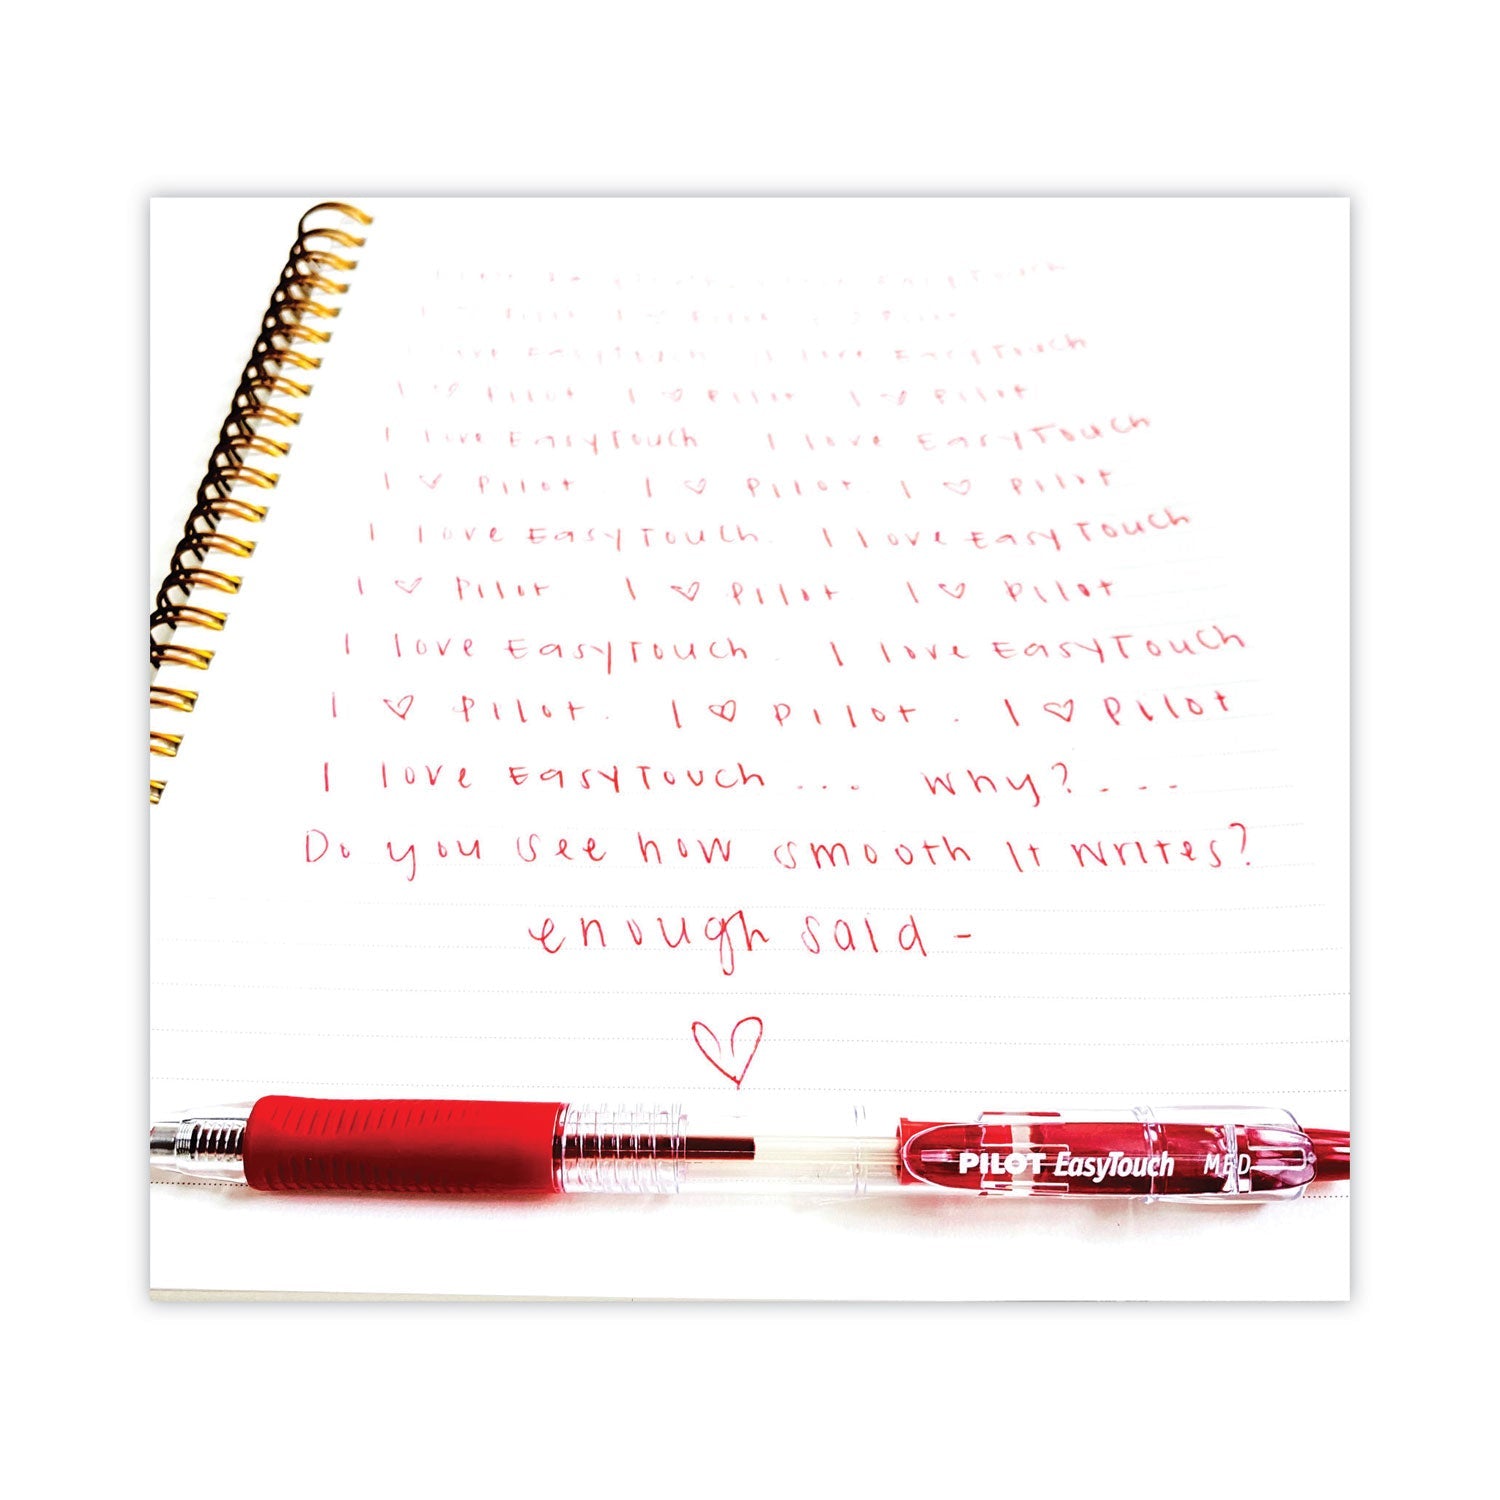 I love EasyTouch
I ♡ Pilot I ♡ Pilot I ♡ Pilot
I love EasyTouch I love EasyTouch
I ♡ Pilot I ♡ Pilot I ♡ Pilot
I love EasyTouch I love EasyTouch
I ♡ Pilot. I ♡ Pilot. I ♡ Pilot
I love EasyTouch. I love EasyTouch
I ♡ Pilot I ♡ Pilot. I ♡ Pilot
I love EasyTouch. I love EasyTouch
I ♡ Pilot. I ♡ Pilot. I ♡ Pilot
I love EasyTouch... Why?...
Do you see how smooth it writes?
enough said -
♡
PILOT EasyTouch MED